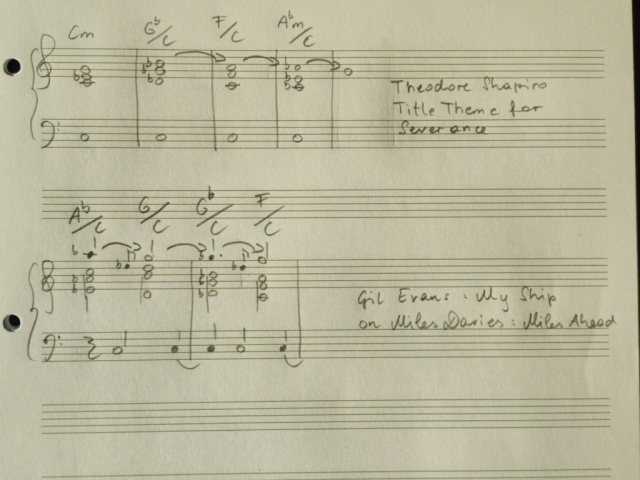 Cm G♭/C F/C A♭m/C
Theodore Shapiro
Title Theme for
Severance
A♭/C G/C G♭/C F/C
Gil Evans: My Ship
on Miles Davies: Miles Ahead